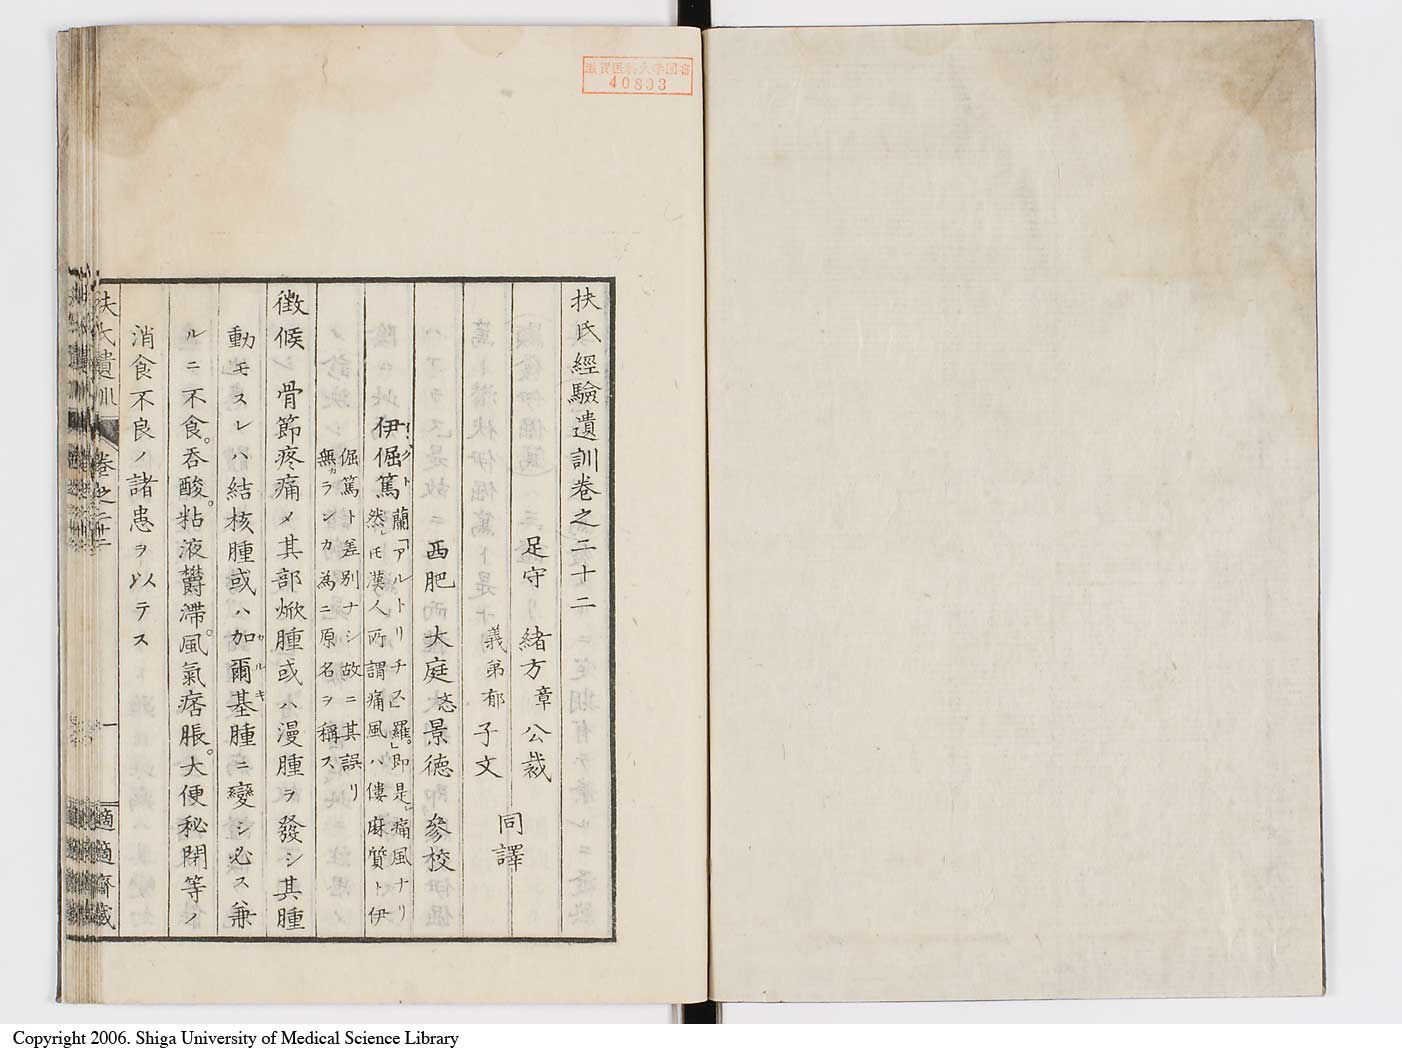 滋賀医科大学図書
40833
扶氏經驗遺訓卷之二十二
足守 緒方章公裁
義弟郁子文 同譯
西肥 大庭忞景德 參校
伊倔篤 イ、グト 蘭「アルトリチス」羅。即是」痛風ナリ
然」モ漢人所謂痛風ハ僂麻質ト伊
倔篤ト差別ナシ故ニ其誤リ
無カランカ為ニ原名ヲ稱ス
徵候 骨節疼痛メ其部焮腫或ハ漫腫ヲ發シ其腫
動モスレハ結核腫或ハ加爾基腫ニ變シ必ス兼 カルキ
ルニ不食。呑酸。粘液欝滯。風氣痞脹。大便秘閉等ノ
消食不良ノ諸患ヲ以テス
扶氏遺訓 卷之二十二 一 適適齋藏
Copyright 2006. Shiga University of Medical Science Library